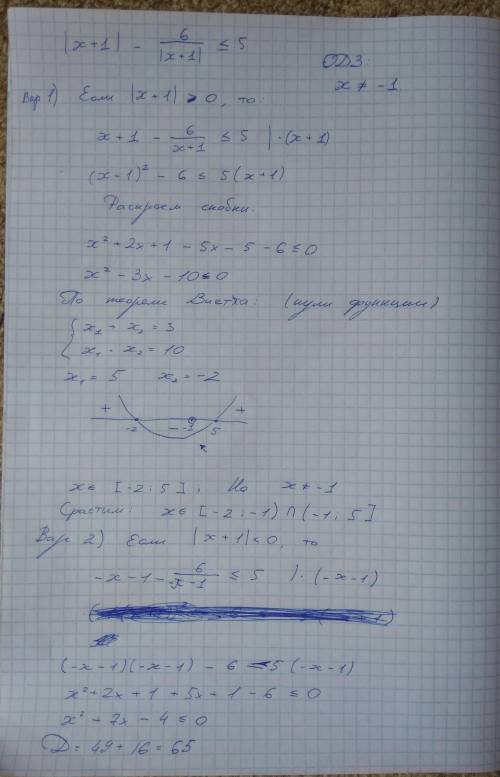 |x+1| - 6/|x+1| ≤ 5
ОДЗ:
x ≠ -1
Вар 1) Если |x+1| > 0, то
x+1 - 6/(x+1) ≤ 5 | ·(x+1)
(x-1)² - 6 ≤ 5(x+1)
Раскроем скобки.
x² + 2x + 1 - 5x - 5 - 6 ≤ 0
x² - 3x - 10 ≤ 0
По теореме Виетта: (нули функции)
x₁ + x₂ = 3
x₁ · x₂ = 10
x₁ = 5 x₂ = -2
+ - +
-2 -1 5
x ∈ [-2 ; 5] ; Но x ≠ -1
x ∈ [-2 ; -1) ∩ (-1 ; 5]
Вар 2) Если |x+1| < 0, то
-x-1 - 6/(-x-1) ≤ 5 | · (-x-1)
(-x-1)(-x-1) - 6 ≤ 5(-x-1)
x² + 2x + 1 + 5x + 1 - 6 ≤ 0
x² + 7x - 4 ≤ 0
D = 49 + 16 = 65